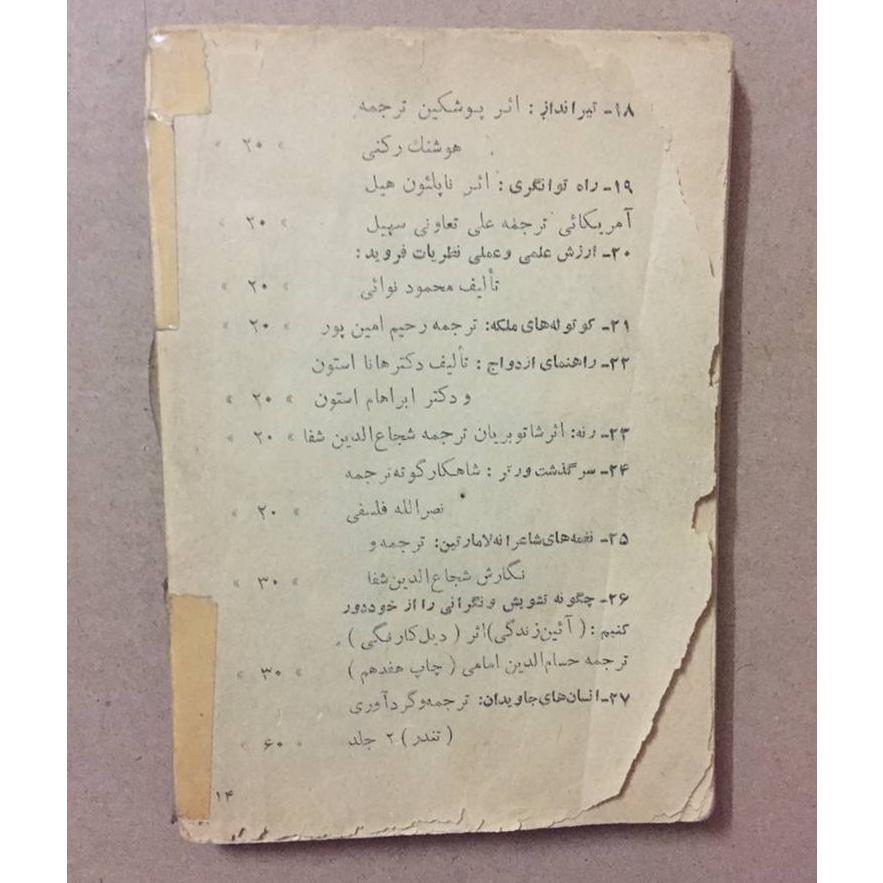 ۱۸ـ تیرانداز: اثر پوشکین ترجمه
هوشنك ركنی » ۲۰ »
۱۹ـ راه توانگری: اثر ناپلئون هیل
آمریکائی ترجمه علی تعاونی سهیل » ۲۰ »
۲۰ـ ارزش علمی و عملی نظریات فروید:
تألیف محمود نوائی » ۲۰ »
۲۱ـ کوتوله‌های ملکه: ترجمه رحیم امین پور » ۲۰ »
۲۲ـ راهنمای ازدواج: تألیف دکتر هانا استون
و دکتر ابراهام استون » ۲۰ »
۲۳ـ رنه: اثر شاتوبریان ترجمه شجاع‌الدین شفا » ۲۰ »
۲۴ـ سرگذشت ورتر: شاهکار گوته ترجمه
نصرالله فلسفی » ۲۰ »
۲۵ـ نغمه‌های شاعرانه لامارتین: ترجمه و
نگارش شجاع‌الدین شفا » ۳۰ »
۲۶ـ چگونه تشویش و نگرانی را از خود دور
کنیم: (آئین زندگی) اثر (دیل کارنگی).
ترجمه حسام‌الدین امامی (چاپ هفدهم) » ۳۰ »
۲۷ـ انسان‌های جاویدان: ترجمه و گردآوری
(تندر) ۲ جلد » ۶۰ »
۱۴